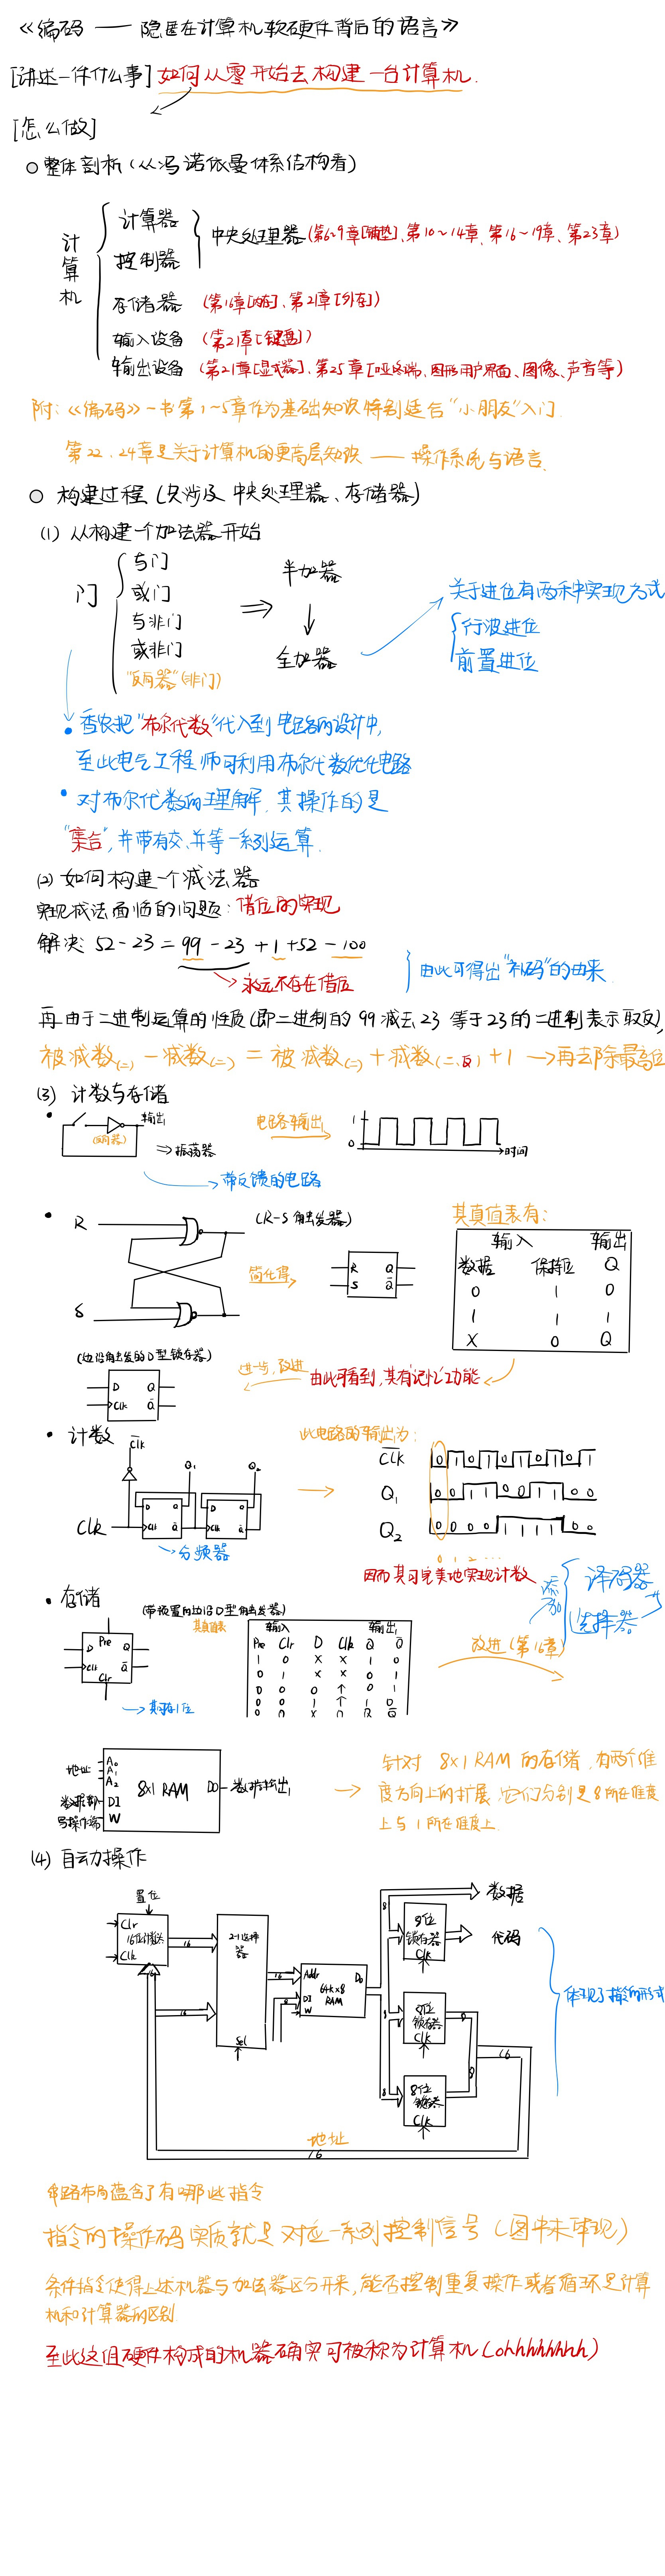 《编码 —— 隐匿在计算机软硬件背后的语言》
[讲述一件什么事] 如何从零开始去构建一台计算机.
[怎么做]
○ 整体剖析 (从冯诺依曼体系结构看)
计算机
计算器
控制器
中央处理器 (第6~9章[铺垫]、第10~14章、第16~19章、第23章)
存储器 (第16章[内存]、第21章[外存])
输入设备 (第21章[键盘])
输出设备 (第21章[显示器]、第25章[哑终端、图形用户界面、图像、声音等)
附: 《编码》一书第1~5章作为基础知识特别适合“小朋友”入门.
第22、24章是关于计算机的更高层知识 —— 操作系统与语言.
○ 构建过程 (只涉及中央处理器、存储器)
(1) 从构建一个加法器开始
门
与门
或门
与非门
或非门
“反向器”(非门)
半加器
全加器
关于进位有两种实现方式
行波进位
前置进位
• 香农把“布尔代数”代入到电路的设计中,
至此电气工程师可利用布尔代数优化电路
• 对布尔代数的理解,其操作的是
“集合”,并带有交、并等一系列运算.
(2) 如何构建一个减法器
实现减法面临的问题: 借位的实现
解决: 52-23 = 99-23+1+52-100
永远不存在借位
由此可得出“补码”的由来.
再由于二进制运算的性质(即二进制的99减去23等于23的二进制表示取反),
被减数(二) - 减数(二) = 被减数(二) + 减数(二、反) + 1 → 再去除最高位
(3) 计数与存储
• 输出
(反向器)
⇒ 振荡器
带反馈的电路
电路输出
1
0
时间
• R
S
(R-S 触发器)
简化得
R Q
S Q̄
其真值表有:
输入 输出
数据 保持位 Q
0 1 0
1 1 1
X 0 Q
由此可看到,其有记忆功能
进一步,改进
(边沿触发的D型锁存器)
D Q
Clk Q̄
• 计数
Clk
Clk
Q₁ Q₂
D Q D Q
Clk Q̄ Clk Q̄
分频器
此电路的输出为:
Clk 0 1 0 1 0 1 0 1 0 1
Q₁ 0 0 1 1 0 0 1 1 0 0
Q₂ 0 0 0 0 1 1 1 1 0 0
0 1 2 ...
因而其可完美地实现计数
添加
译码器
选择器
• 存储 (带预置的边沿D型触发器)
Pre
D Q
Clk Q̄
Clr
其可存1位
真值表
输入 输出
Pre Clr D Clk Q Q̄
1 0 X X 1 0
0 1 X X 0 1
0 0 0 ↑ 0 1
0 0 1 ↑ 1 0
0 0 X 0 Q Q̄
改进 (第16章)
地址
A₀
A₁
A₂
DI
W
8×1 RAM
DO
数据输出
写操作端
针对 8×1 RAM 的存储,有两个维
度方向上的扩展,它们分别是8所在维度
上与1所在维度上.
(4) 自动操作
置位
Clr
16位计数器
Clk
16
2-1选择器
Sel
16
Addr
64k×8
RAM
DI
W
Do
8
数据
8位
锁存器
Clk
代码
8位
锁存器
Clk
8位
锁存器
Clk
16
地址
16
体现了指令的形式
电路布局蕴含了有哪些指令
指令的操作码实质就是对应一系列控制信号 (图中未体现)
条件指令使得上述机器与加法器区分开来,能否控制重复操作或者循环是计算
机和计算器的区别.
至此这组硬件构成的机器确实可被称为计算机 (ohhhhhhhh)